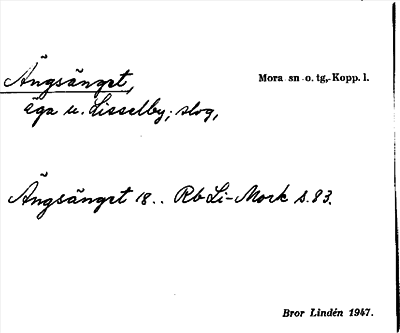 Ängsängst,
Mora sn o. tg,-Kopp. l.
äga u. Lisselby; slog,
Ängsängst 18.. Rb Li-Mork s. 83.
Bror Lindén 1947.